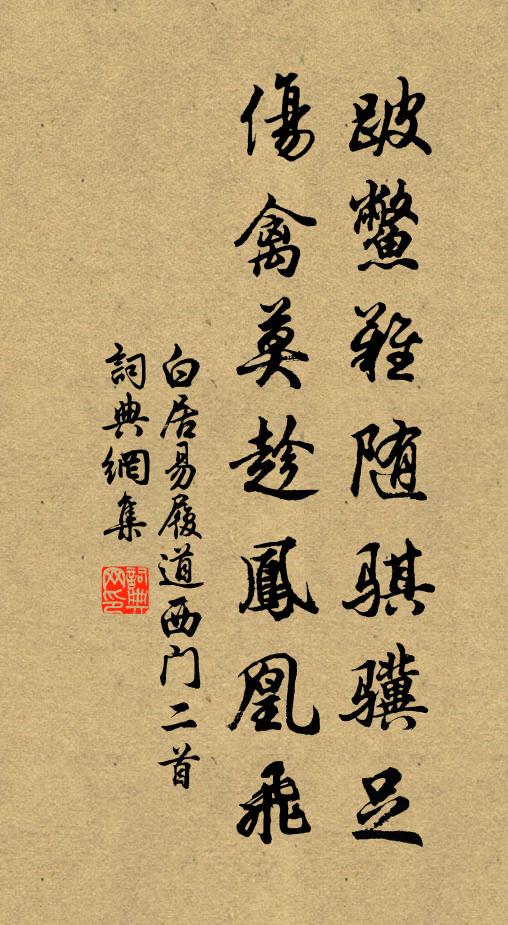 跛鳖難随骐骥足
傷禽莫趁鳳凰飛
白居易履道西门二首
詞典網集
詞典网印